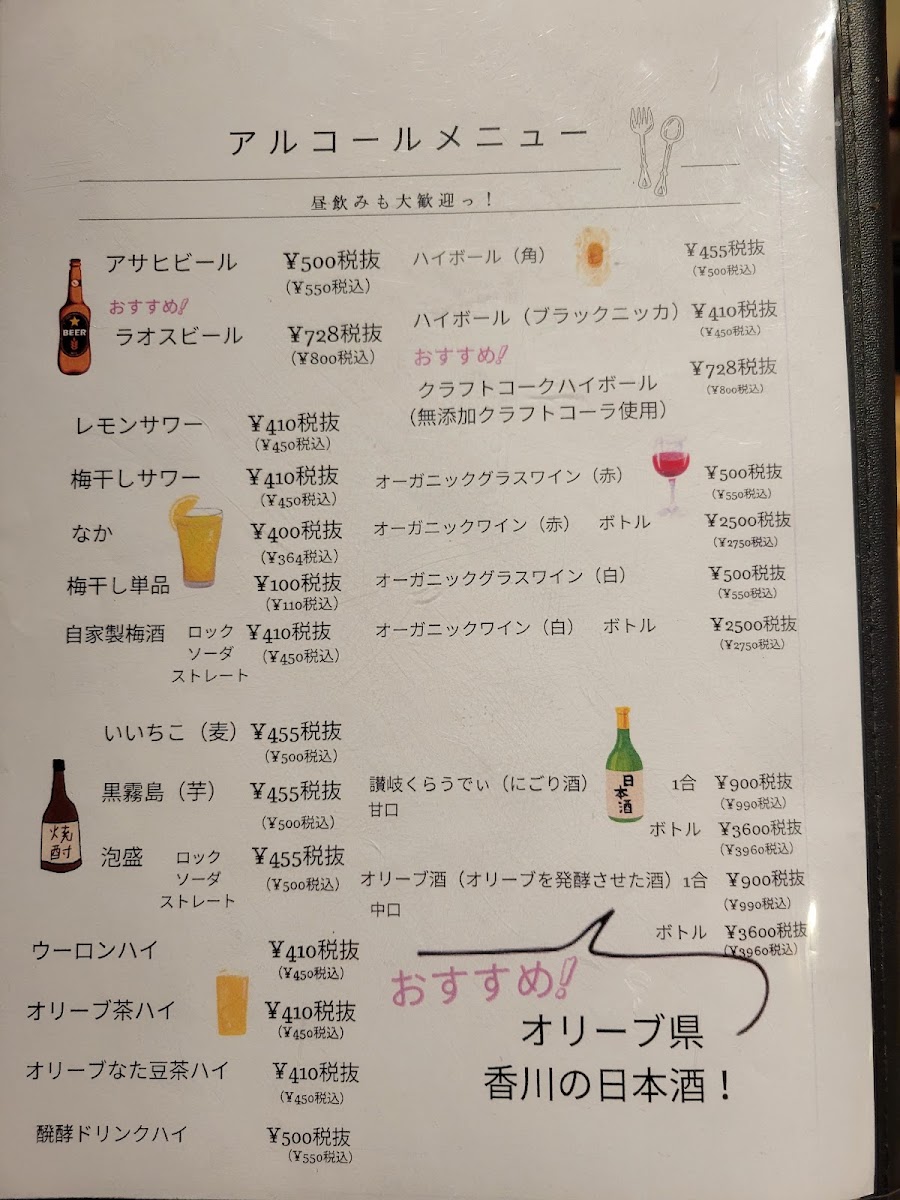 アルコールメニュー
昼飲みも大歓迎っ！
アサヒビール ¥500税抜
(¥550税込)
おすすめ!
ラオスビール ¥728税抜
(¥800税込)
BEER
レモンサワー ¥410税抜
(¥450税込)
梅干しサワー ¥410税抜
(¥450税込)
なか ¥400税抜
(¥364税込)
梅干し単品 ¥100税抜
(¥110税込)
自家製梅酒 ロック ¥410税抜
ソーダ (¥450税込)
ストレート
いいちこ（麦） ¥455税抜
(¥500税込)
黒霧島（芋） ¥455税抜
(¥500税込)
焼酎
泡盛 ロック ¥455税抜
ソーダ (¥500税込)
ストレート
ウーロンハイ ¥410税抜
(¥450税込)
オリーブ茶ハイ ¥410税抜
(¥450税込)
オリーブなた豆茶ハイ ¥410税抜
(¥450税込)
醗酵ドリンクハイ ¥500税抜
(¥550税込)
ハイボール（角） ¥455税抜
(¥500税込)
ハイボール（ブラックニッカ） ¥410税抜
(¥450税込)
おすすめ!
クラフトコークハイボール ¥728税抜
（無添加クラフトコーラ使用） (¥800税込)
オーガニックグラスワイン（赤） ¥500税抜
(¥550税込)
オーガニックワイン（赤） ボトル ¥2500税抜
(¥2750税込)
オーガニックグラスワイン（白） ¥500税抜
(¥550税込)
オーガニックワイン（白） ボトル ¥2500税抜
(¥2750税込)
日本酒
讃岐くらうでぃ（にごり酒） 1合 ¥900税抜
甘口 (¥990税込)
ボトル ¥3600税抜
(¥3960税込)
オリーブ酒（オリーブを発酵させた酒）1合 ¥900税抜
中口 (¥990税込)
ボトル ¥3600税抜
(¥3960税込)
おすすめ!
オリーブ県
香川の日本酒！